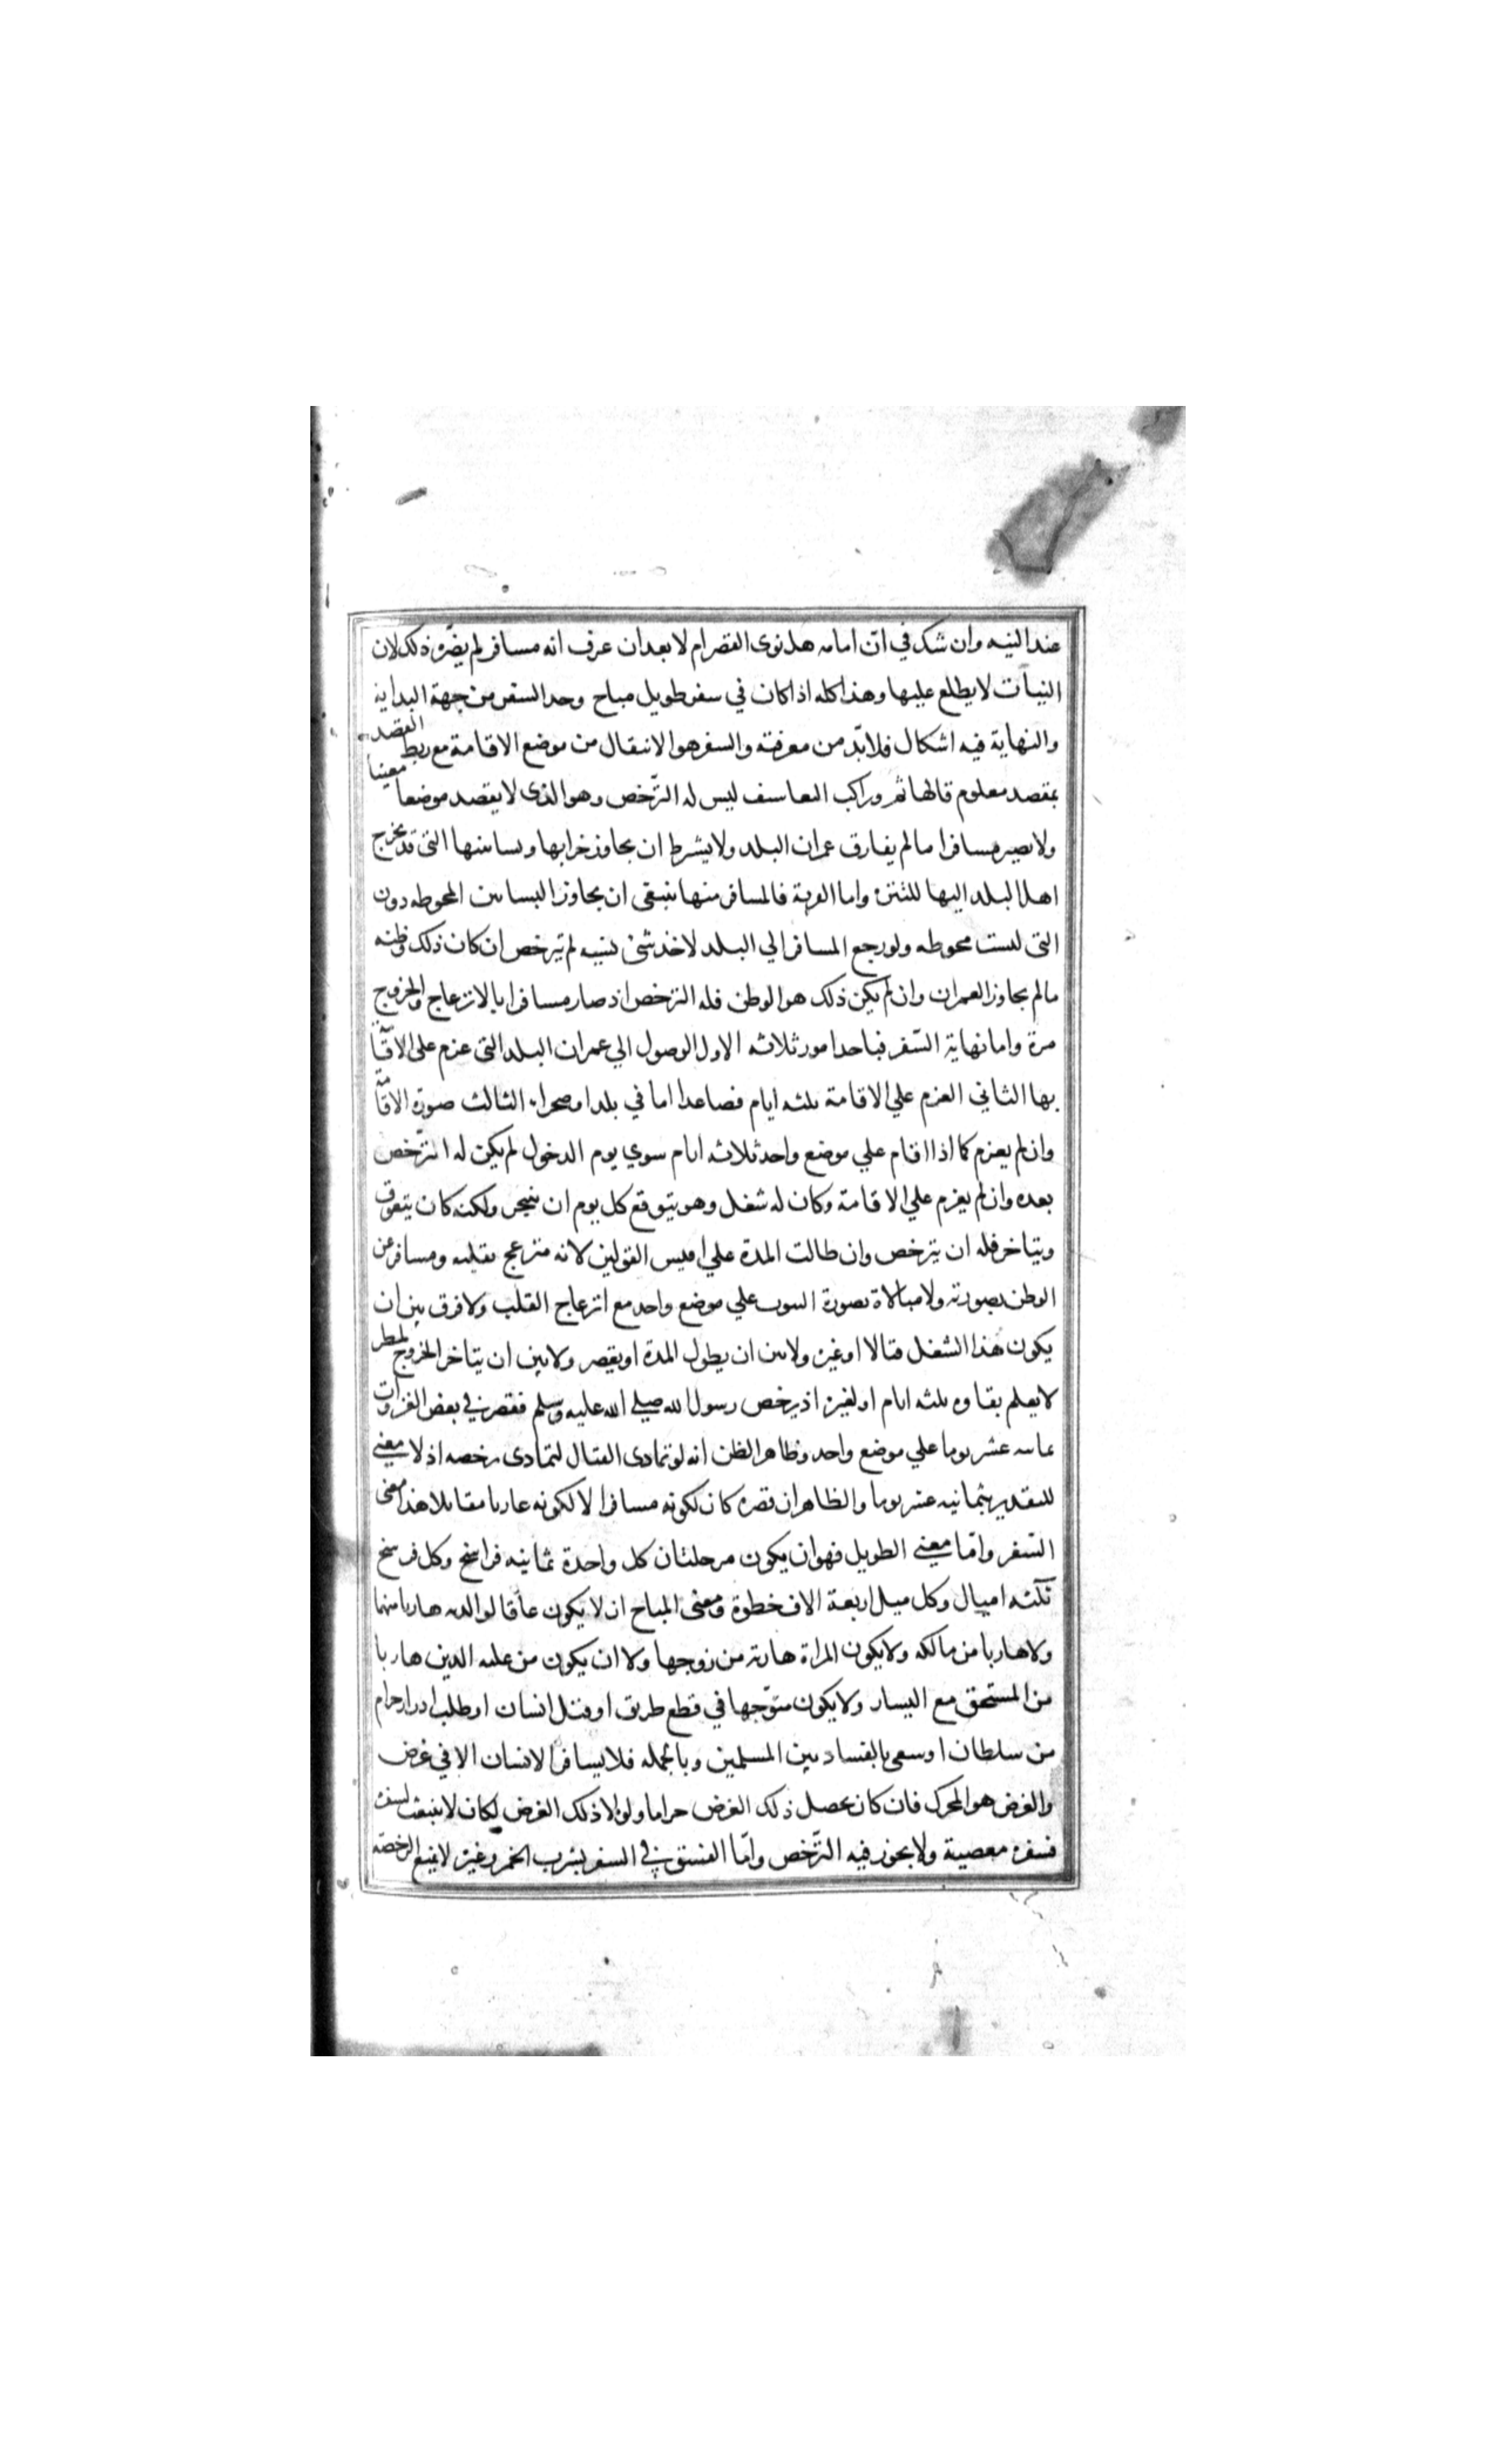 عند النيه وان شك في ان امامه هل نوى القصر ام لا بعد ان عرف انه مسافر لم يضره ذلك لان
النيات لا يطلع عليها وهذا كله اذا كان في سفر طويل مباح وحد السفر من جهة البداية
والنهاية فيه اشكال فلا بد من معرفته والسفر هو الانتقال من موضع الاقامة مع ربط القصد
بمقصد معلوم فالهائم وراكب التعاسف ليس له الترخص وهو الذى لا يقصد موضعا معينا
ولا يصير مسافرا ما لم يفارق عمران البلد ولا يشرط ان يجاوز خرابها وبساتينها التى قد يخرج
اهل البلد اليها للتنزه واما القرية فالمسافر منها ينبغى ان يجاوز البساتين المحوطه دون
التى ليست محوطه ولو رجع المسافر الي البلد لاخذ شئ نسيه لم يترخص ان كان ذلك وطنه
ما لم يجاوز العمران وان لم يكن ذلك هو الوطن فله الترخص اذ صار مسافرا بالانزعاج والخروج
مرة واما نهاية السفر فباحد امور ثلاثه الاول الوصول الي عمران البلد التى عزم على الاقامة
بها الثاني العزم علي الاقامة ثلثه ايام فصاعدا اما في بلد او صحراء الثالث صورة الاقامة
وان لم يعزم كما اذا اقام علي موضع واحد ثلاثه ايام سوي يوم الدخول لم يكن له الترخص
بعده وان لم يعزم علي الاقامة وكان له شغل وهو يتوقع كل يوم ان ينجز ولكنه كان يتعوق
ويتاخر فله ان يترخص وان طالت المدة علي اقيس القولين لانه منزعج بقلبه ومسافر عن
الوطن بصورته ولا مبالاة بصورة الثبوت علي موضع واحد مع انزعاج القلب ولا فرق بين ان
يكون هذا الشغل قتالا او غيره ولا بين ان يطول المدة او يقصر ولا بين ان يتاخر الخروج لمطر
لا يعلم بقاوه ثلثه ايام او لغيره اذ يرخص رسول الله صلي الله عليه وسلم فقصر في بعض الغزوات
ثمانيه عشر يوما علي موضع واحد وظاهر الظن انه لو تمادى القتال لتمادى رخصه اذ لا معني
للتقدير بثمانيه عشر يوما والظاهر ان قصره كان لكونه مسافرا لا لكونه غازيا مقاتلا هذا معنى
السفر واما معني الطويل فهو ان يكون مرحلتان كل واحدة ثمانيه فراسخ وكل فرسخ
ثلثه اميال وكل ميل اربعة الاف خطوة ومعنى المباح ان لا يكون عاقا لوالديه هاربا منهما
ولا هاربا من مالكه ولا يكون المراة هاربة من زوجها ولا ان يكون من عليه الدين هاربا
من المستحق مع اليسار ولا يكون متوجها في قطع طريق او قتل انسان او طلب ادرار حرام
من سلطان او سعى بالفساد بين المسلمين وبالجمله فلا يسافر الانسان الا في غرض
والغرض هو المحرك فان كان تحصيل ذلك الغرض حراما ولولا ذلك الغرض لكان لا ينبعث لسفره
فسفره معصية ولا يجوز فيه الترخص واما الفسق في السفر بشرب الخمر وغيره لا يمنع الرخصه